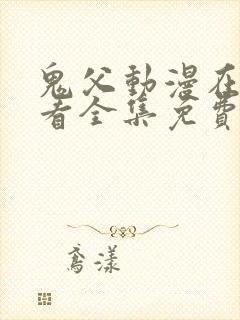 鬼父動漫在
看全集免費
鳶漾